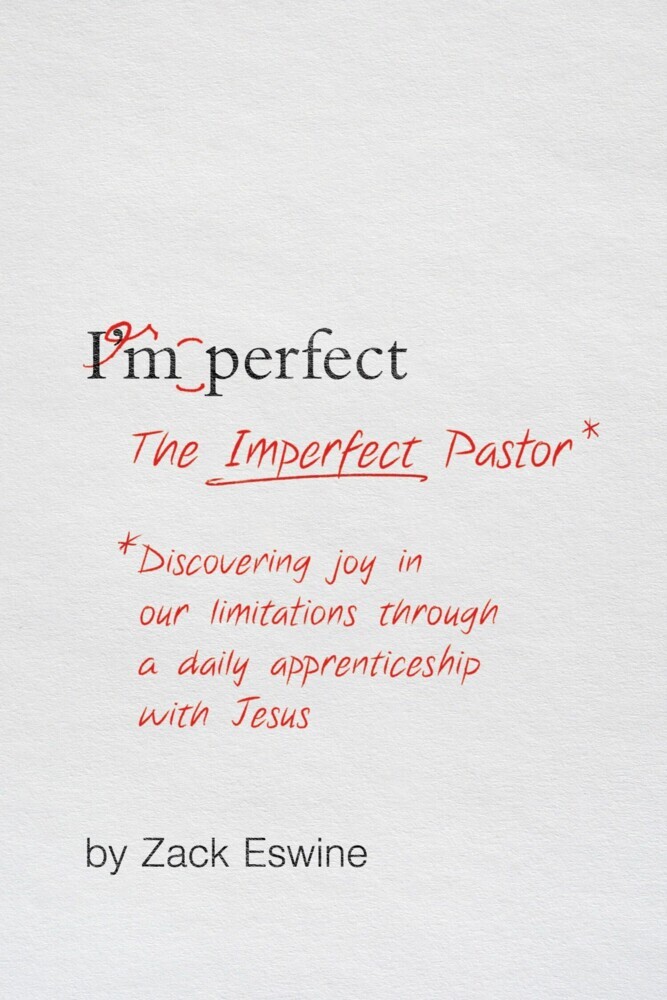 I'm perfect
The Imperfect Pastor*
*Discovering joy in
our limitations through
a daily apprenticeship
with Jesus
by Zack Eswine